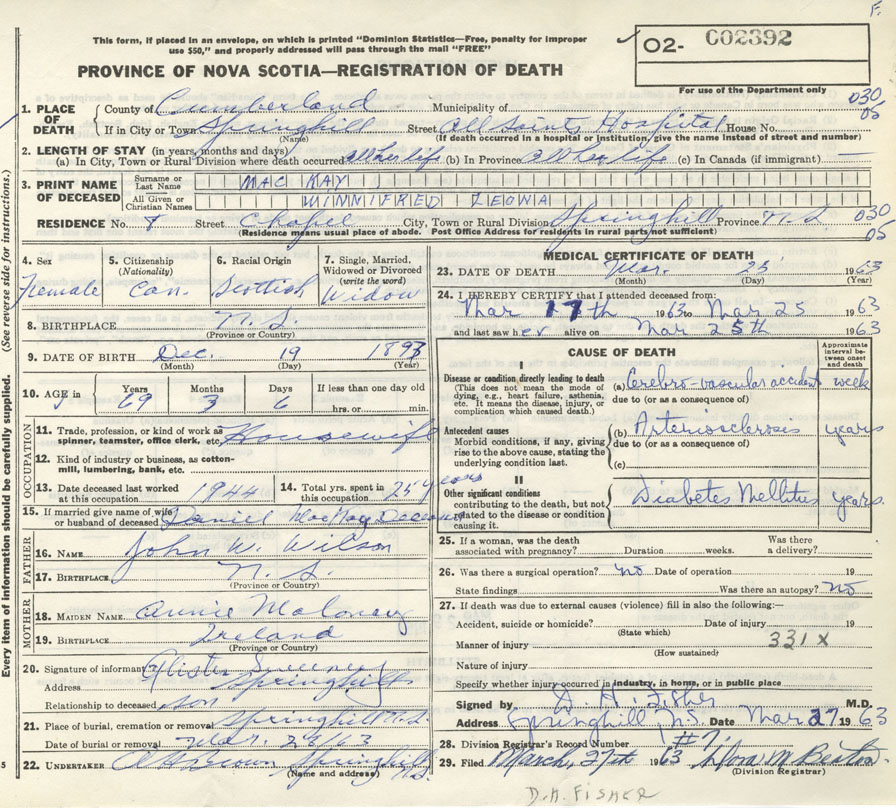 F.
This form, if placed in an envelope, on which is printed "Dominion Statistics—Free, penalty for improper
use $50," and properly addressed will pass through the mail "FREE"
✓ 02- C02392
PROVINCE OF NOVA SCOTIA—REGISTRATION OF DEATH
For use of the Department only
1. PLACE OF DEATH County of Cumberland Municipality of 030
If in City or Town Springhill Street All Saints Hospital House No. 05
(Name) (If death occurred in a hospital or institution, give the name instead of street and number)
2. LENGTH OF STAY (in years, months and days)
(a) In City, Town or Rural Division where death occurred all her life (b) In Province all her life (c) In Canada (if immigrant) —
3. PRINT NAME OF DECEASED Surname or Last Name MAC KAY
All Given or Christian Names WINNIFRED LEOWA
RESIDENCE No. 8 Street Chapel City, Town or Rural Division Springhill Province N.S. 030
(Residence means usual place of abode. Post Office Address for residents in rural parts not sufficient) 05
(See reverse side for instructions.)
Every item of information should be carefully supplied.
4. Sex Female
5. Citizenship (Nationality) Can.
6. Racial Origin Scottish
7. Single, Married, Widowed or Divorced (write the word) Widow
8. BIRTHPLACE N.S.
(Province or Country)
9. DATE OF BIRTH Dec. 19 1893
(Month) (Day) (Year)
10. AGE in Years 69 Months 3 Days 6 If less than one day old hrs. or min.
OCCUPATION
11. Trade, profession or kind of work as spinner, teamster, office clerk, etc. Housewife
12. Kind of industry or business, as cotton-mill, lumbering, bank, etc.
13. Date deceased last worked at this occupation 1944
14. Total yrs. spent in this occupation 25 years
15. If married give name of wife or husband of deceased Daniel MacKay
FATHER
16. NAME John W. Wilson
17. BIRTHPLACE N.S.
(Province or Country)
MOTHER
18. MAIDEN NAME Annie Maloney
19. BIRTHPLACE Ireland
(Province or Country)
20. Signature of informant Sweeney
Address Springhill
Relationship to deceased son
21. Place of burial, cremation or removal Springhill N.S.
Date of burial or removal Mar.
22. UNDERTAKER Brown Springhill N.S.
(Name and address)
5
MEDICAL CERTIFICATE OF DEATH
23. DATE OF DEATH Mar. 25 1963
(Month) (Day) (Year)
24. I HEREBY CERTIFY that I attended deceased from:
Mar 19th 1963 to Mar 25 1963
and last saw her alive on Mar 25th 1963
CAUSE OF DEATH
Approximate interval between onset and death
I
Disease or condition directly leading to death
(This does not mean the mode of dying, e.g., heart failure, asthenia, etc. It means the disease, injury, or complication which caused death.)
(a) Cerebro-vascular accident week
due to (or as a consequence of)
Antecedent causes
Morbid conditions, if any, giving rise to the above cause, stating the underlying condition last.
(b) Arteriosclerosis years
due to (or as a consequence of)
(c)
II
Other significant conditions
contributing to the death, but not related to the disease or condition causing it.
Diabetes Mellitus years.
25. If a woman, was the death associated with pregnancy? Duration weeks. Was there a delivery?
26. Was there a surgical operation? no Date of operation 19
State findings Was there an autopsy? no
27. If death was due to external causes (violence) fill in also the following:—
Accident, suicide or homicide? Date of injury 19
(State which)
Manner of injury 331 X
(How sustained)
Nature of injury
Specify whether injury occurred in industry, in home, or in public place
Signed by D. H. Fisher M.D.
Address Springhill, N.S. Date Mar 27 1963
28. Division Registrar's Record Number #7.
29. Filed March, 27th 1963 M Beaton
(Division Registrar)
D.H. FISHER